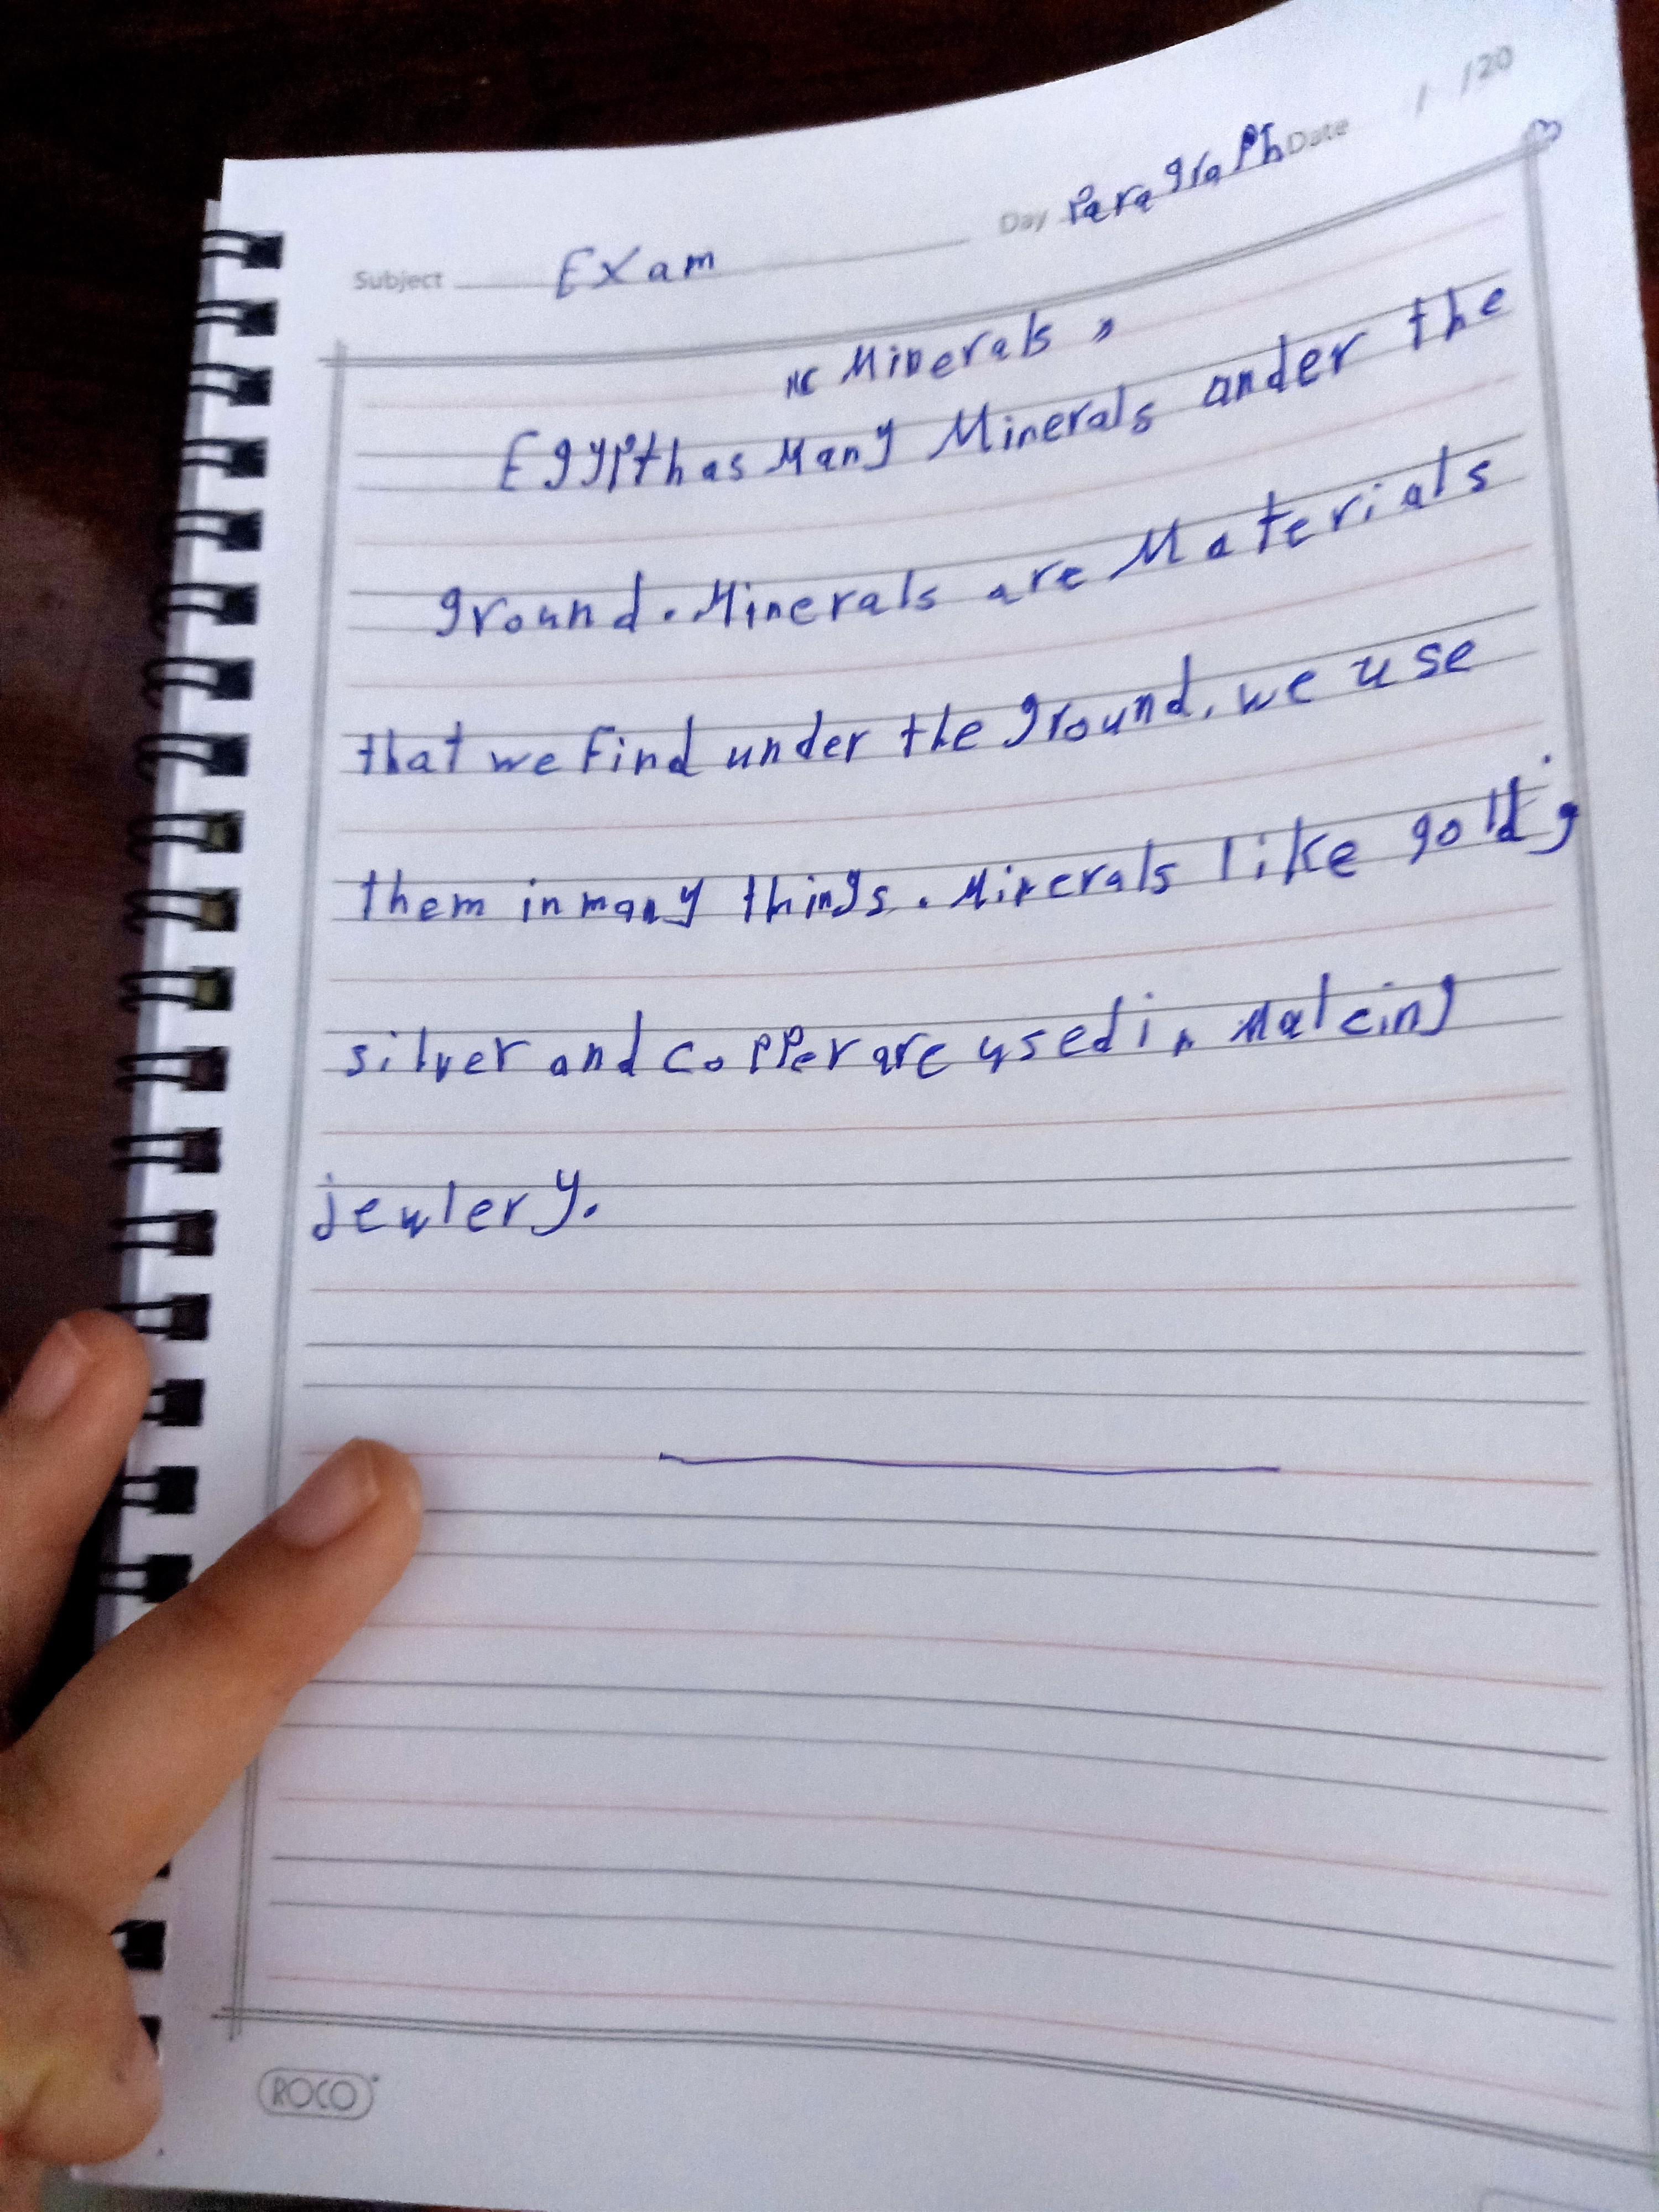 Subject Exam Day ParagraPh Date / /20
" Minerals "
EgyPt has Many Minerals under the
ground. Minerals are Materials
that we find under the ground. we use
them in many things. Minerals like gold,
silver and coPPer are used in Making
jewlery.
ROCO